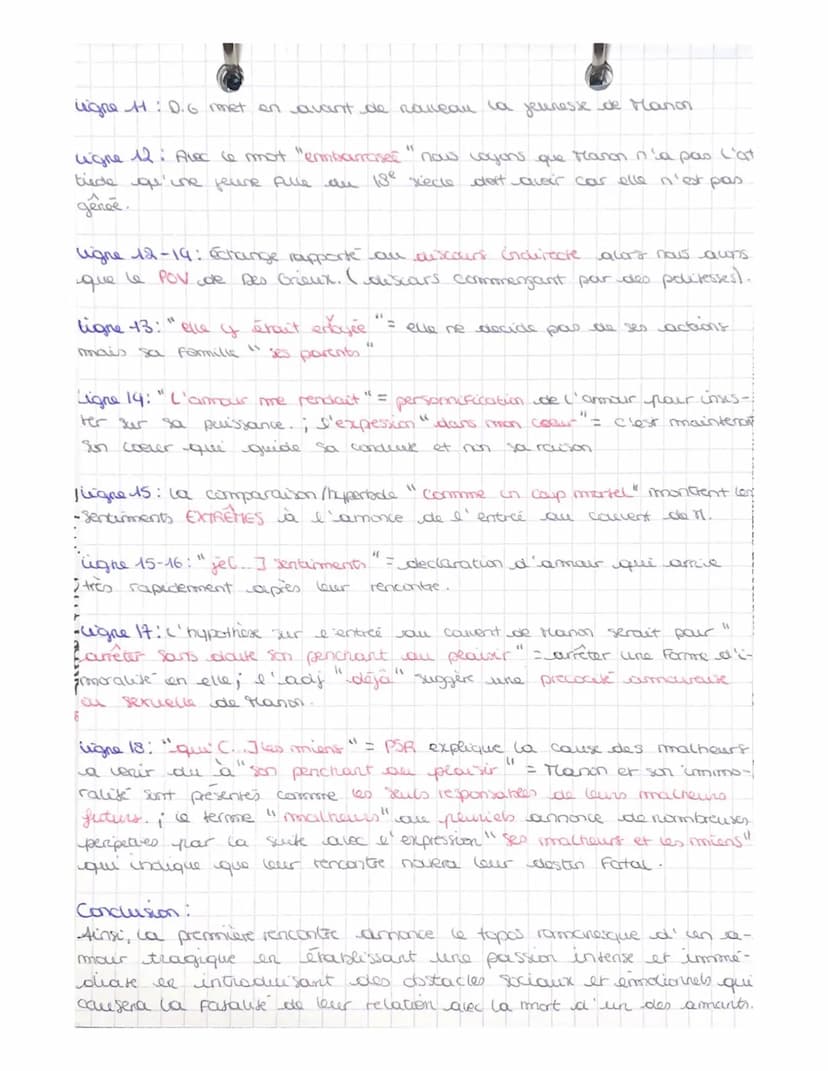 Ligne 11 : D.G met en avant de nouveau la jeunesse de Manon
Ligne 12 : Avec le mot "embarrassée" nous voyons que Manon n'a pas l'at
titude qu'une jeune fille du 18e siècle doit avoir car elle n'est pas
gênée.
Ligne 12-14 : Échange rapporté au discours indirecte alors nous avons
que le POV de Des Grieux. (discours commençant par des politesses).
Ligne 13 : "elle y était envoyée" = elle ne décide pas de ses actions
mais sa famille "ses parents"
Ligne 14 : "L'amour me rendait" = personnification de l'amour pour insis-
ter sur sa puissance. ; l'expession "dans mon coeur" = c'est maintenant
son coeur qui guide sa conduite et non sa raison
Ligne 15 : la comparaison/hyperbole "comme un coup mortel" montrent les
sentiments EXTRÊMES à l'annonce de l'entrée au couvent de M.
Ligne 15-16 : "je[...] sentiments" = declaration d'amour qui arrive
très rapidement après leur rencontre.
Ligne 17 : L'hypothèse sur l'entreé au couvent de Manon serait pour "
arrêter sans doute son penchant au plaisir" = arrêter une forme d'i-
moralité en elle ; l'adj "déjà" suggère une précocité amoureuse
ou sexuelle de Manon.
Ligne 18 : "qui [...] les miens" = PSR explique la cause des malheurs
a venir du à "son penchant au plaisir" = Manon et son immo-
ralité sont présentés comme les seuls responsables de leurs malheurs
futurs. ; le terme "malheurs" au pluriels annonce de nombreuses
peripeties par la suite avec l'expression "ses malheurs et les miens"
qui indique que leur rencontre nouera leur destin fatal.
Conclusion :
Ainsi, la première rencontre annonce le topos romanesque d'un a-
mour tragique en établissant une passion intense et immé-
diate et introduisant des obstacles sociaux et émotionnels qui
causera la fatalité de leur relation avec la mort d'un des amants.